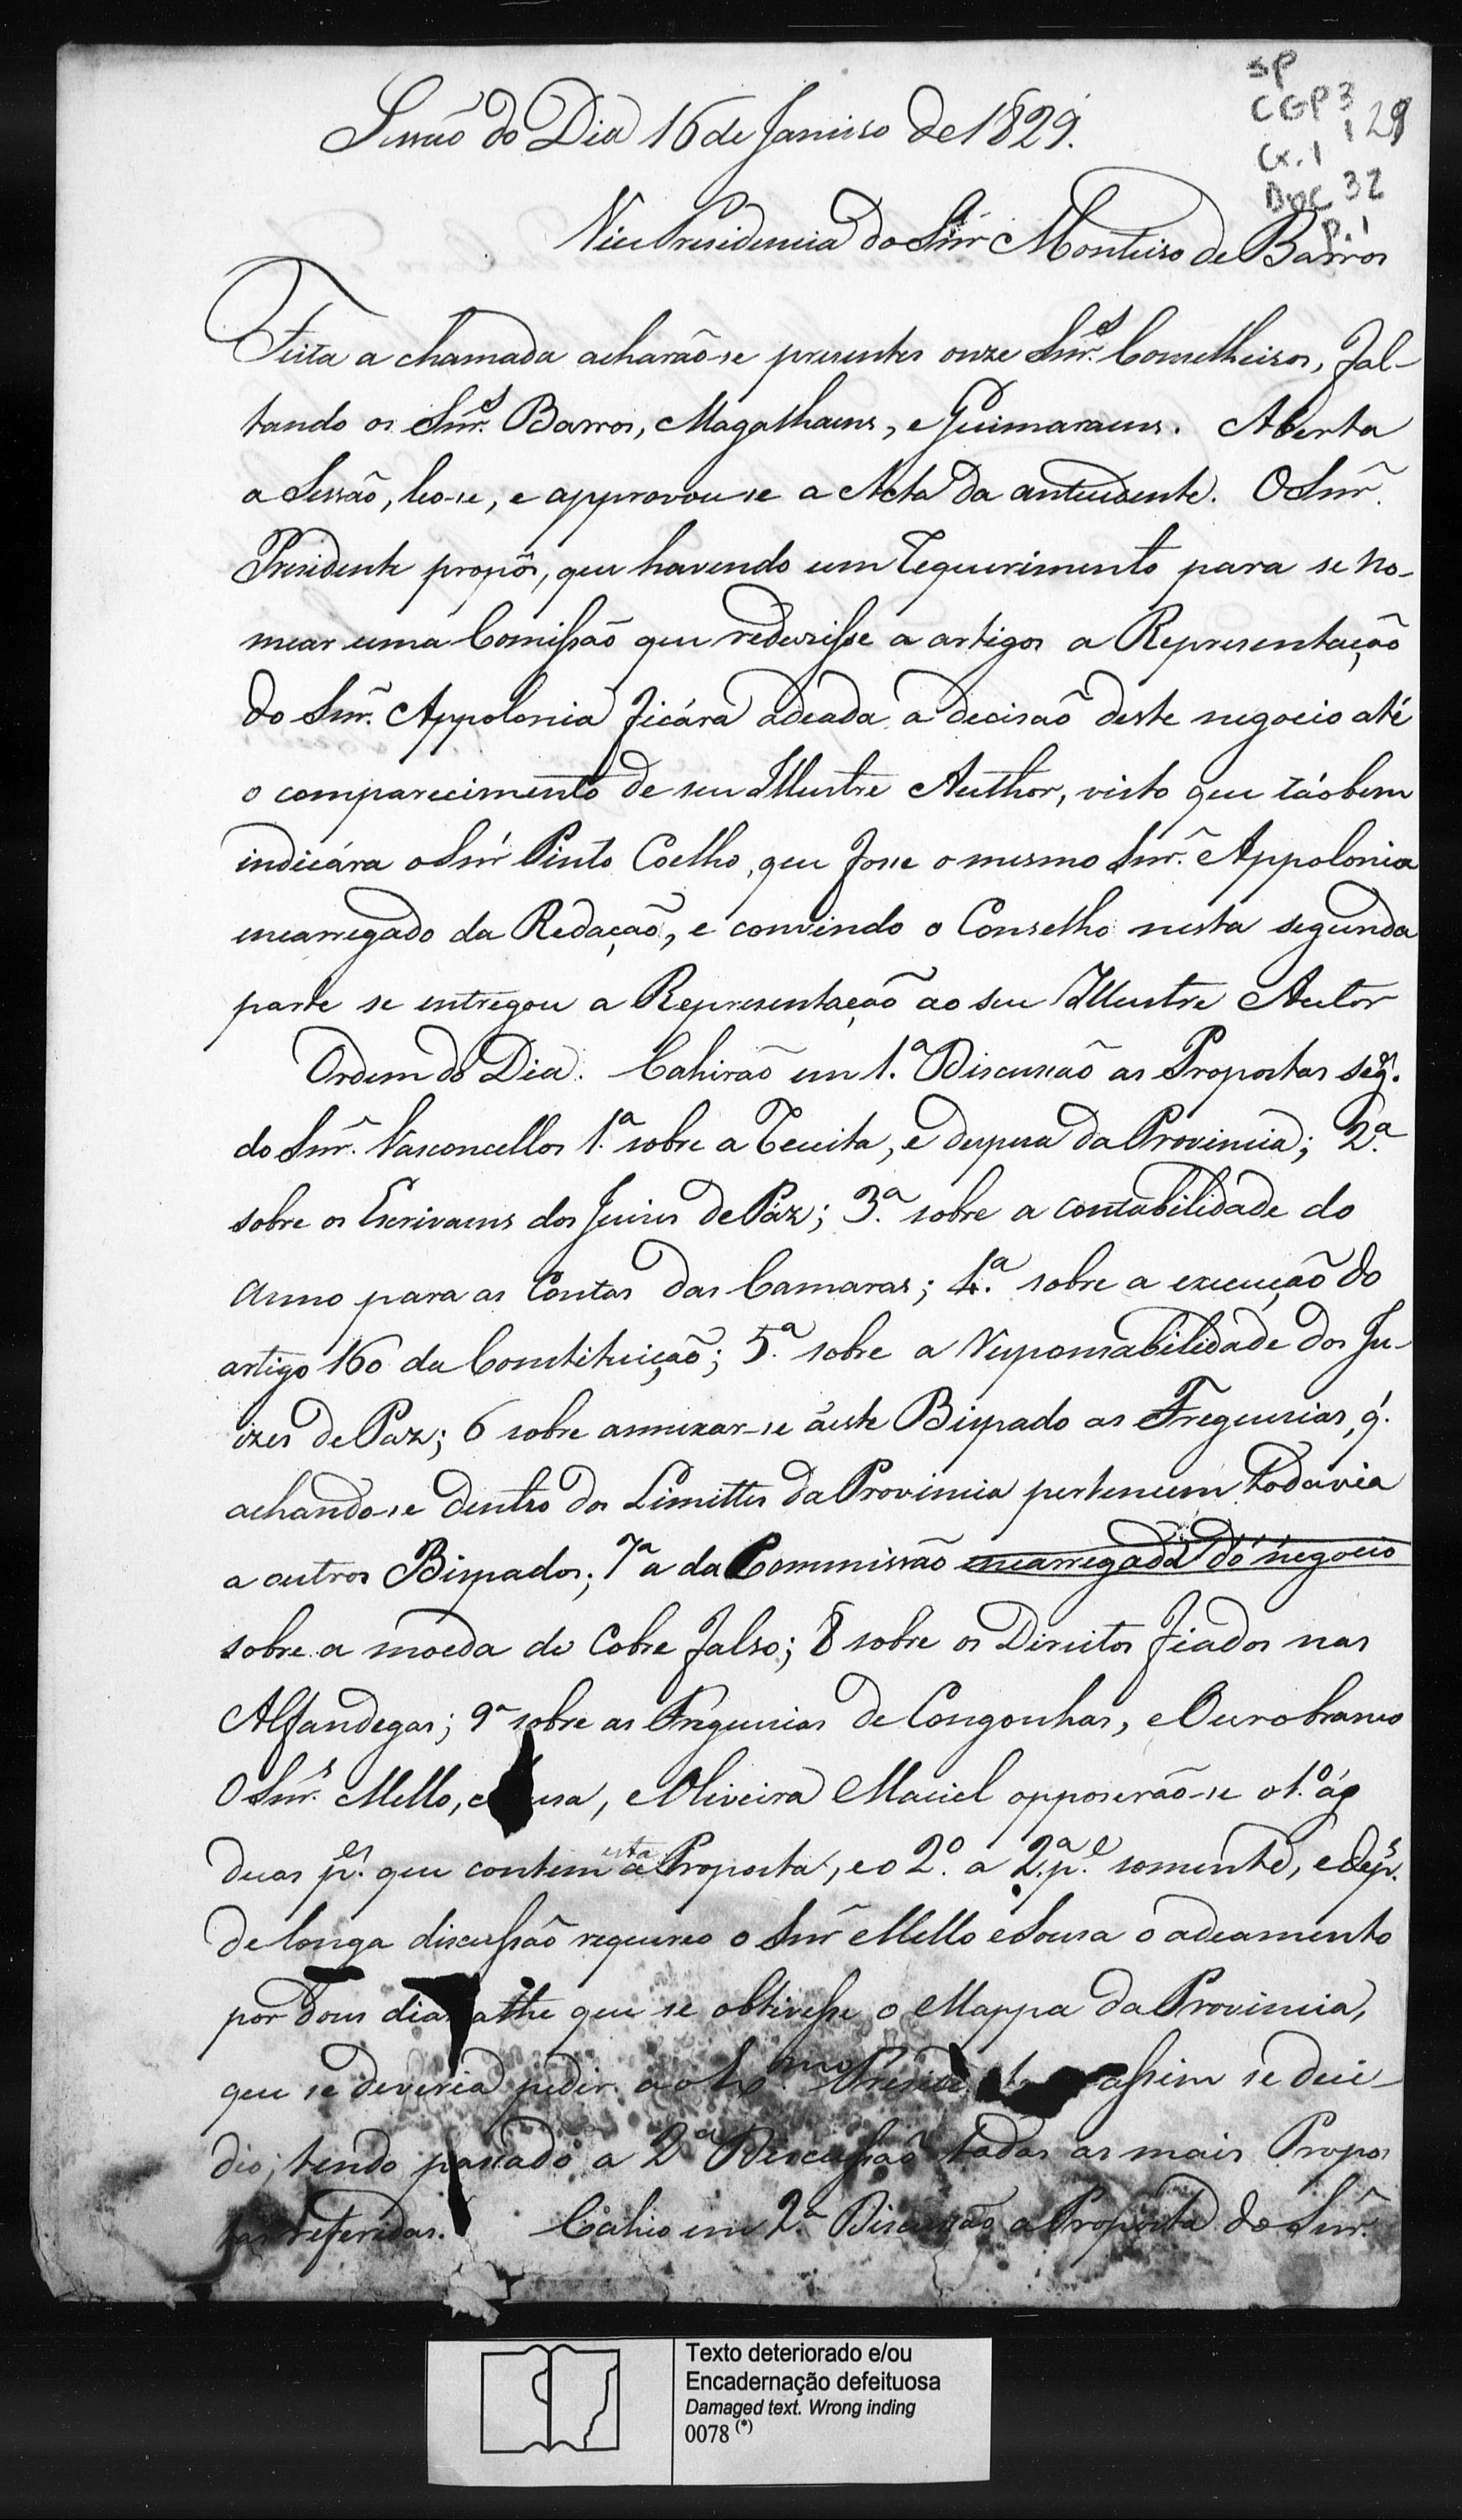 SP
CGP 3
1 29
Cx. 1
Doc 32
P. 1
Sessão do Dia 16 de Janeiro de 1829.
Vice Presidencia do Snr Monteiro de Barros
Feita a chamada acharão-se presentes onze Snr.s Conselheiros, fal-
tando os Snr.s Barros, Magalhaens, e Guimaraens. Aberta
a Sessão, leo-se, e approvou-se a Acta da antecedente. O Snr.
Presidente propôs, que havendo um Requerimento para se no-
mear uma Comissão que redusisse a artigos a Representação
do Snr. Appolonia ficára adeada a decisaõ deste negocio até
o comparecimento de seu Illustre Author, visto que táobem
indicára o Snr Pinto Coelho, que fosse o mesmo Snr. Appolonia
encarregado da Redaçaõ, e convindo o Conselho nesta segunda
parte se entregou a Representaçaõ ao seu Illustre Autor
Ordem do Dia. Cahiraõ em 1.ª Discussaõ as Propostas seg.
do Snr. Vasconcellos 1.ª sobre a Receita, e despesa da Provincia; 2.ª
sobre os Escrivaens dos Juises de Páz; 3.ª sobre a contabilidade do
anno para as Contas das Camaras; 4.ª sobre a execuçaõ do
artigo 160 da Constituiçaõ; 5.ª sobre a Responsabilidade dos Ju-
izes de Paz; 6 sobre annexar-se áeste Bispado as Freguesias, q.
achando-se dentro dos Limittes da Provincia pertencem todavia
a outros Bispados; 7ª a da Commissão encarregada do negocio
sobre a moeda de Cobre falso; 8 sobre os Direitos fiados nas
Alfandegas; 9ª sobre as Freguesias de Congonhas, e Ouro branco
O Snr.s Mello, e usa, e Oliveira Maciel opposerão-se o 1.º ás
duas p.es que contem esta a Proposta, e o 2.º a 2.ª p.e somente, e dep.s
de longa discussaõ requereo o Snr Mello e Sousa o adeamento
por dous dias athe que se obtivesse o Mappa da Provincia,
que se deveria pedir ao Ex.mo Preside assim se deci-
dio; tendo passado a 2ª Discussaõ todas as mais Propos
tas referidas. Cahio em 2.ª Discussaõ a Proposta do Snr.
Texto deteriorado e/ou
Encadernação defeituosa
Damaged text. Wrong inding
0078 (*)